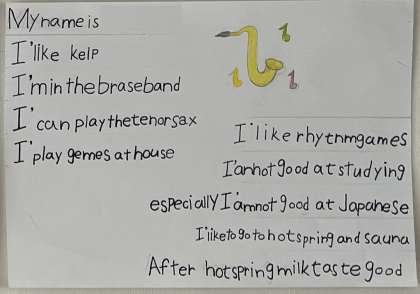 My name is
I'like kelp
I'm in the braseband
I' can play the tenor sax
I' play gemes at house
I'like rhytnmgames
I'amnot good at studying
especially I'amnot good at Japanese
I'like to go to hotspring and sauna
After hotspring milk taste good